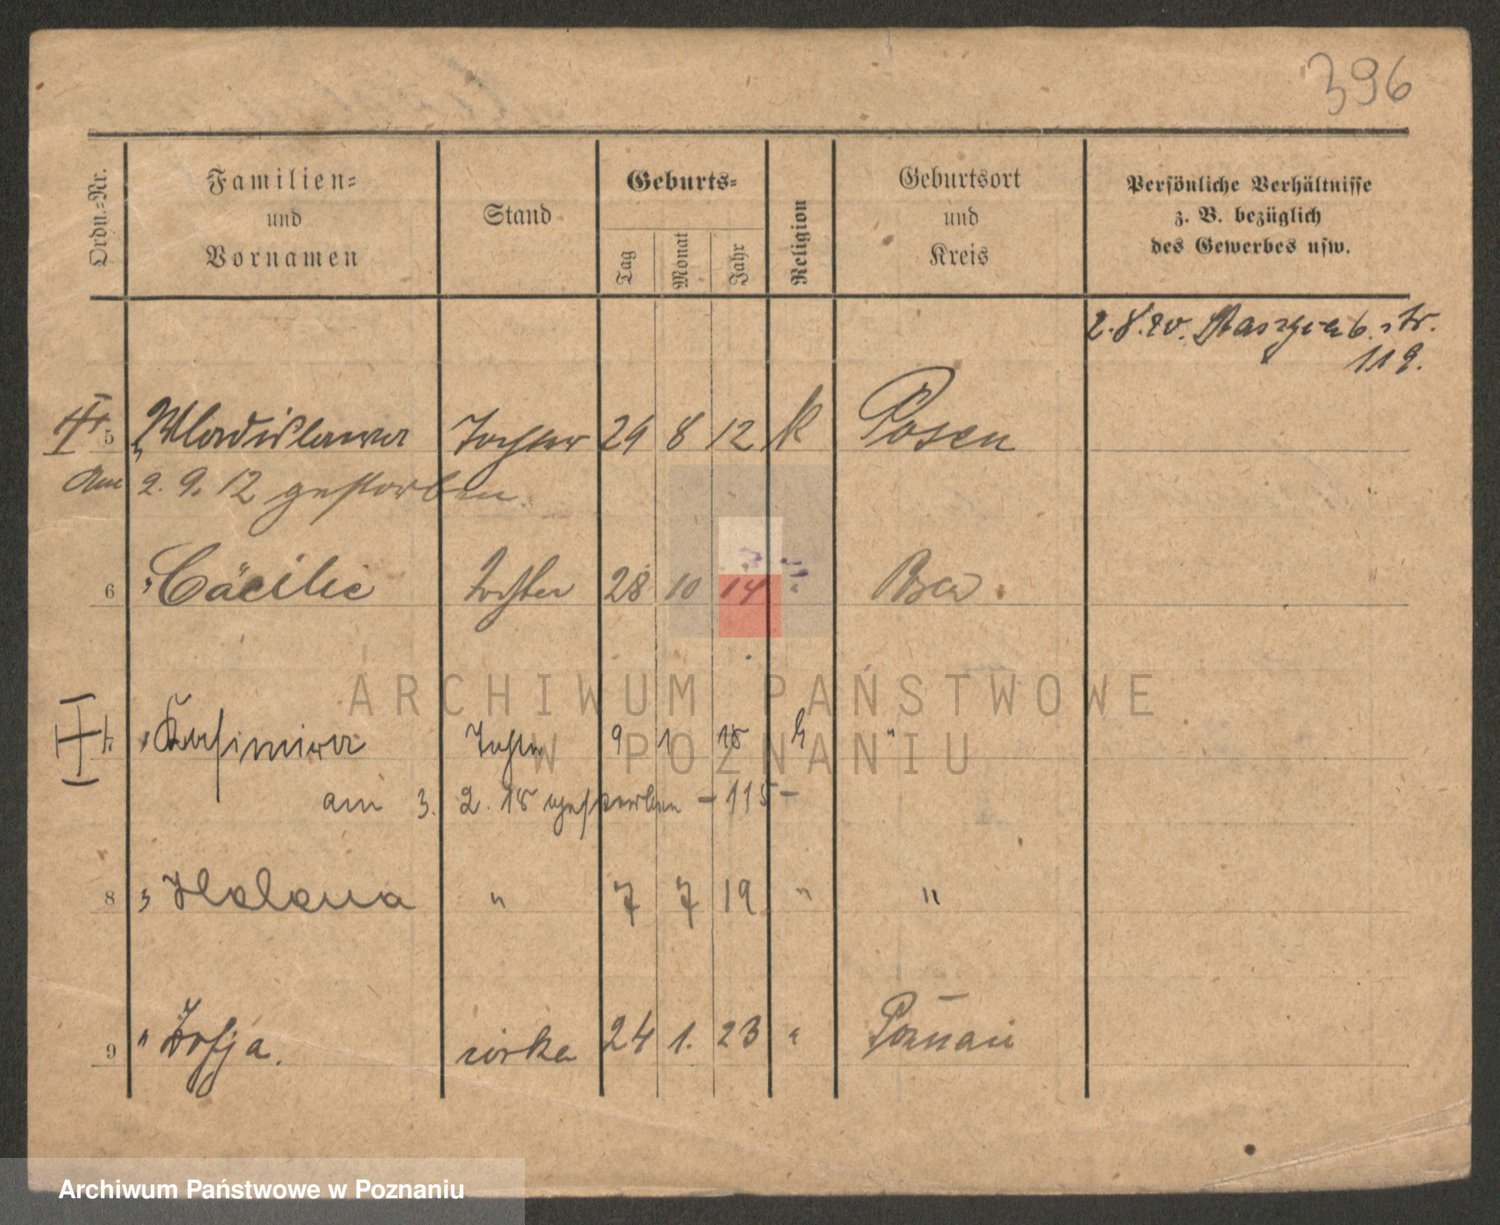 396
Ordn.-Nr.
Familien-
und
Vornamen
Stand
Geburts-
Tag
Monat
Jahr
Religion
Geburtsort
und
Kreis
Persönliche Verhältnisse
z. B. bezüglich
des Gewerbes usw.
2.8.20. str.
119.
5 " Wladislawa Tochter 29 8 12 k Posen
Am 2.9.12 gestorben.
6 " Cäcilie Tochter 28 10 14 " Posen
7 " Kasimira Tochter 9 1 15 k "
am 3. 2. 15 gestorben - 115 -
8 " Helena " 7 7 19 " "
9 " Zofja. córka 24 1. 23 " Poznań
ARCHIWUM PAŃSTWOWE
W POZNANIU
Archiwum Państwowe w Poznaniu